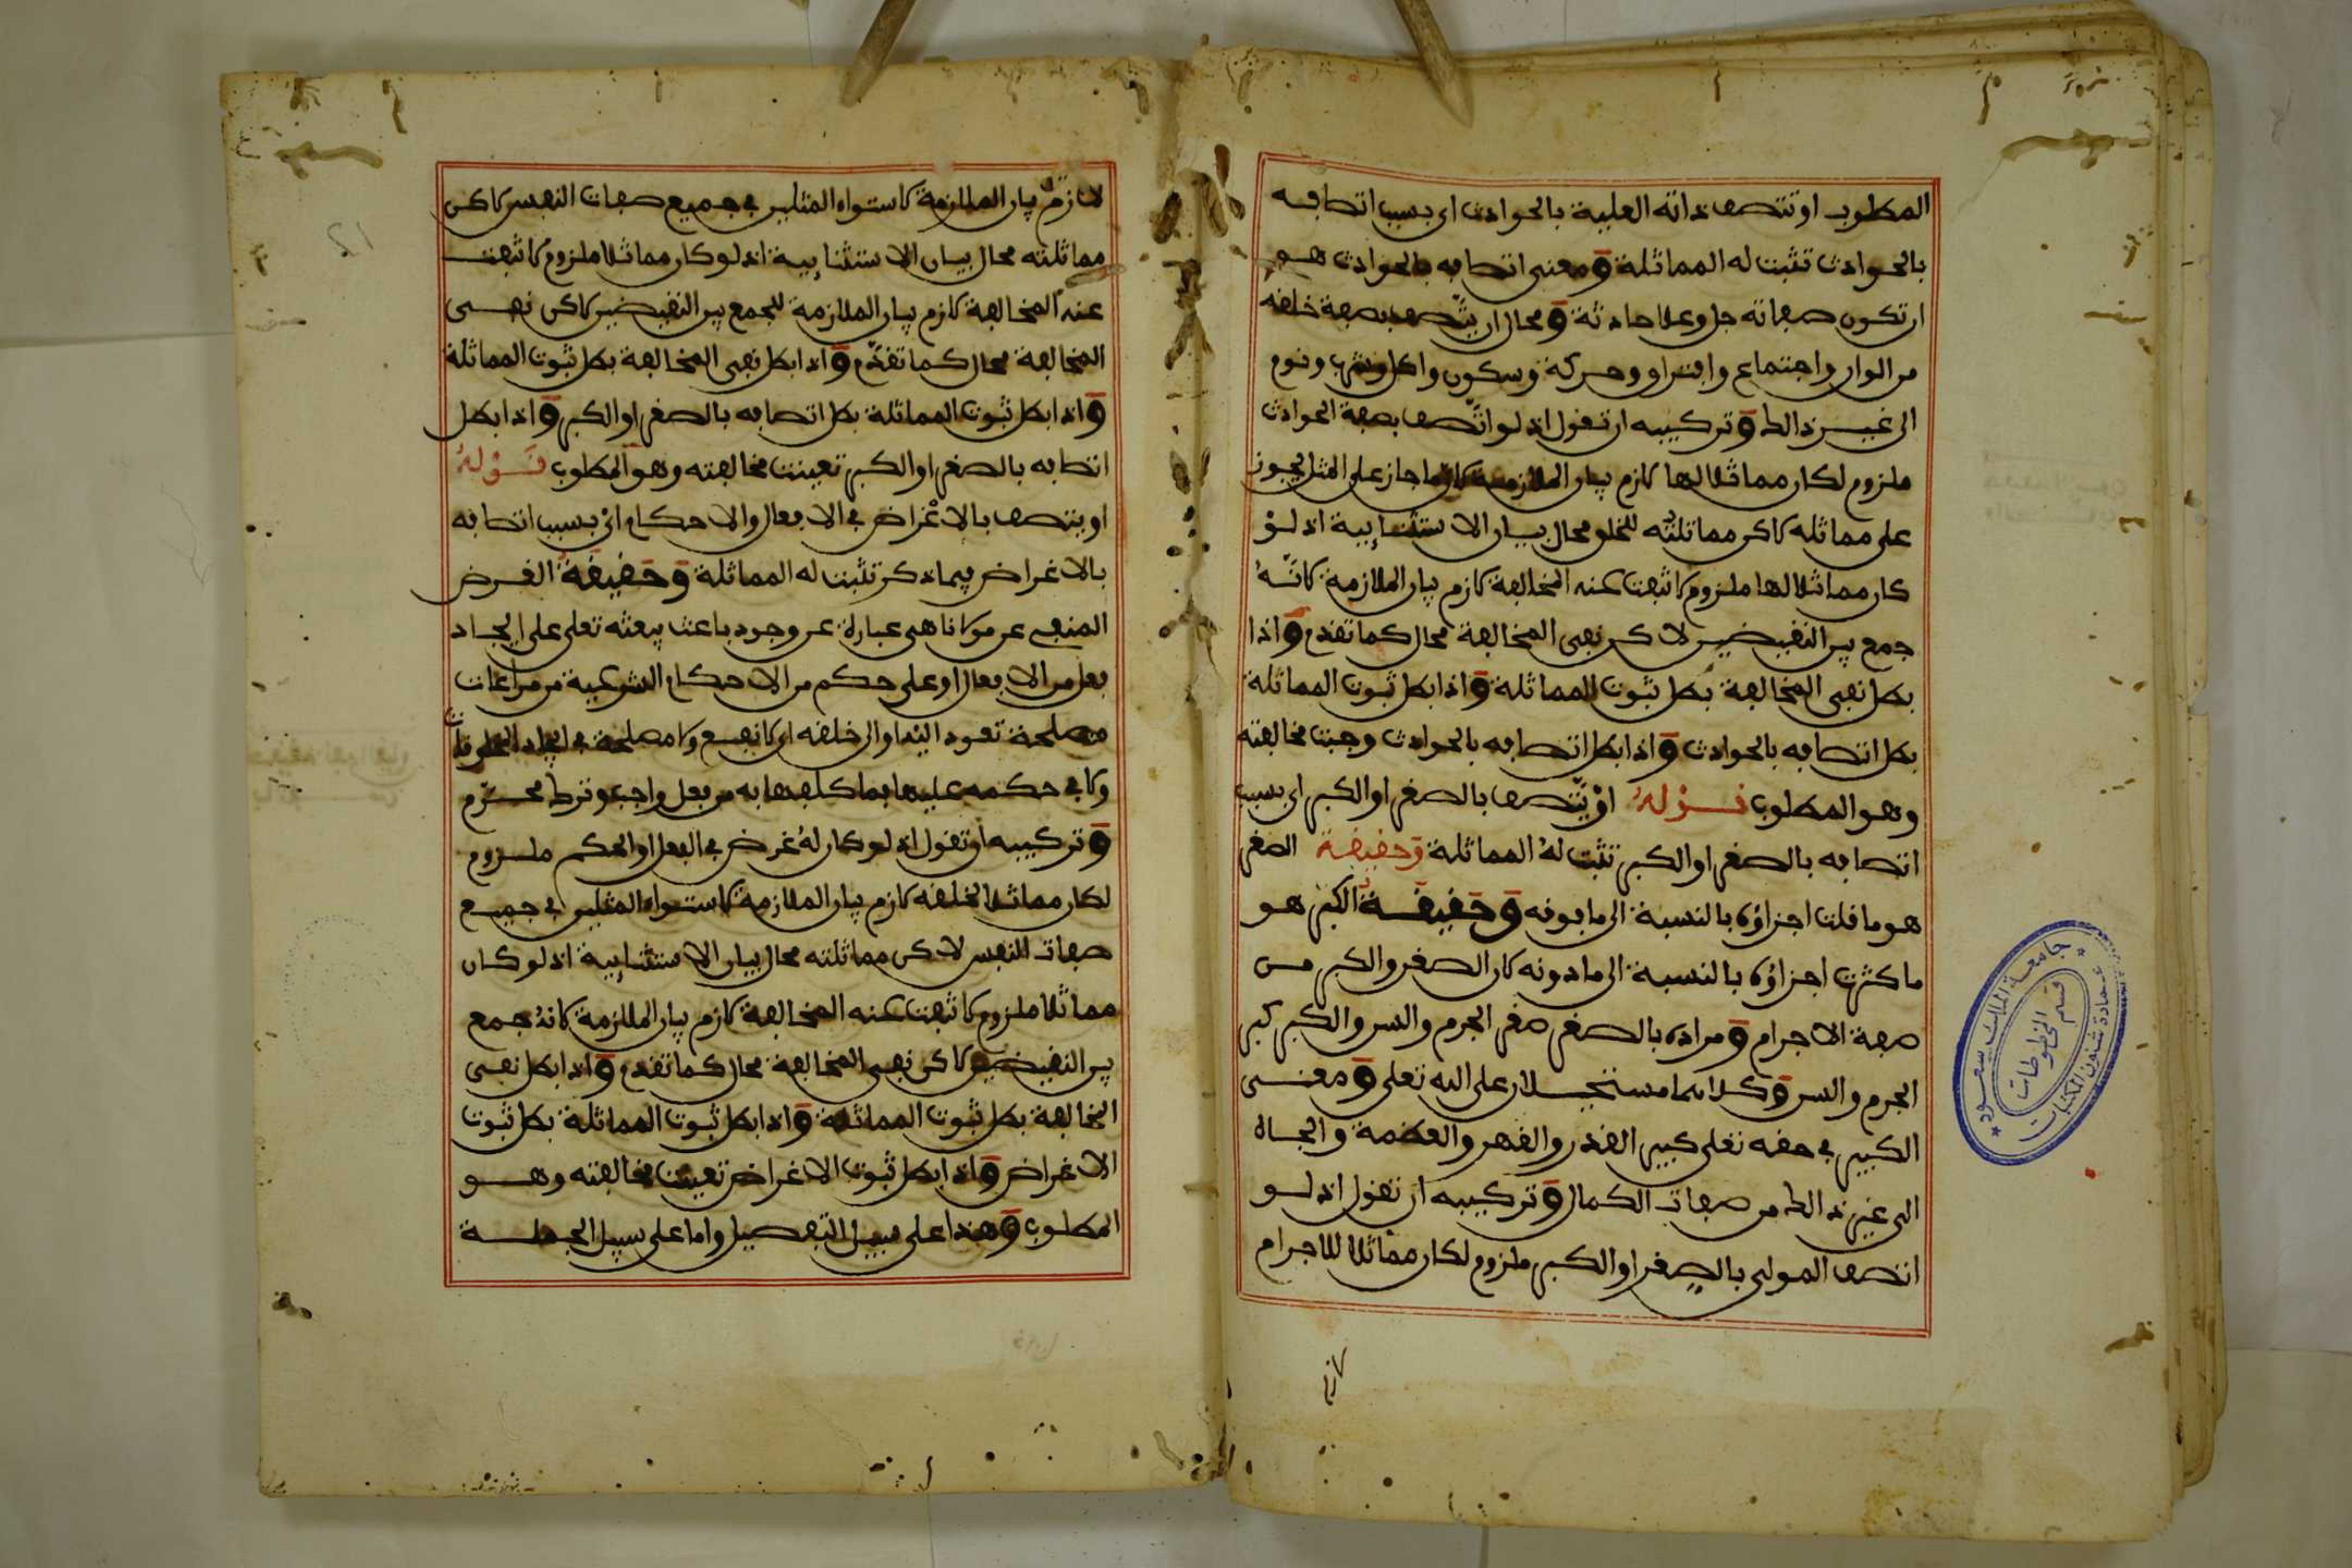 المطلوب او تتصف ذاته العلية بالحوادث اي بسبب اتصافه
بالحوادث تثبت له المماثلة ومعنى اتصافه بالحوادث هو
ان تكون صفاته جل وعلا حادثة ومحال ان يتصف بصفة خلقه
من الوان واجتماع وافتراق وحركة وسكون واكل وشرب ونوم
الى غير ذالك وتركيبه ان تقول اذ لو اتصف بصفة الحوادث
ملزوم لكان مماثلا لها لازم بيان الملازمة لان ما جاز على المثل يجوز
على مماثله لاكن مماثلته للخلق محال بيان الاستثنايية اذ لو
كان مماثلا لها ملزوم لانتفت عنه المخالفة لازم بيان الملازمة لانه
جمع بين النقيضين لاكن نفي المخالفة محال كما تقدم واذا
بطل نفي المخالفة بطل ثبوت المماثلة واذا بطل ثبوت المماثلة
بطل اتصافه بالحوادث واذا بطل اتصافه بالحوادث وجبت مخالفته
وهو المطلوب قوله او يتصف بالصغر او الكبر اي بسبب
اتصافه بالصغر او الكبر تثبت له المماثلة وحقيقة الصغر
هو ما قلت اجزاؤه بالنسبة الى ما فوقه وحقيقة الكبر هو
ما كثرت اجزاؤه بالنسبة الى ما دونه لان الصغر والكبر من
صفة الاجرام ومراده بالصغر صغر الجرم والسن والكبر كبر
الجرم والسن وكلاهما مستحيلان على الله تعلى ومعنى
الكبير في حقه تعلى كبير القدر والقهر والعظمة والجاه
الى غير ذالك من صفات الكمال وتركيبه ان تقول اذ لو
اتصف المولى بالصغر او الكبر ملزوم لكان مماثلا للاجرام
لازم
جامعة الملك سعود
عمادة شئون المكتبات
قسم المخطوطات
لازم بيان الملازمة لاستواء المثلين في جميع صفات النفس لاكن
مماثلته محال بيان الاستثنايية اذ لو كان مماثلا ملزوم لانتفت
عنه المخالفة لازم بيان الملازمة للجمع بين النقيضين لاكن نفي
المخالفة محال كما تقدم واذا بطل نفي المخالفة بطل ثبوت المماثلة
واذا بطل ثبوت المماثلة بطل اتصافه بالصغر او الكبر واذا بطل
اتصافه بالصغر او الكبر تعينت مخالفته وهو المطلوب قوله
او يتصف بالاغراض في الافعال والاحكام اي بسبب اتصافه
بالاغراض فيما ذكر تثبت له المماثلة وحقيقة الغرض
المنفي عن مولانا هي عبارة عن وجود باعث يبعثه تعلى على ايجاد
فعل من الافعال او على حكم من الاحكام الشرعية من مراعات
مصلحة تعود اليه او الى خلقه اي لا نفع ولا مصلحة في ايجاد المخلوقات
ولا في حكمه عليها بما كلفها به من فعل واجب وترك محرم
وتركيبه ان تقول اذ لو كان له غرض في الفعل او الحكم ملزوم
لكان مماثلا لخلقه لازم بيان الملازمة لاستواء المثلين في جميع
صفات النفس لاكن مماثلته محال بيان الاستثنايية اذ لو كان
مماثلا ملزوم لانتفت عنه المخالفة لازم بيان الملازمة لانه جمع
بين النقيضين لاكن نفي المخالفة محال كما تقدم واذا بطل نفي
المخالفة بطل ثبوت المماثلة واذا بطل ثبوت المماثلة بطل ثبوت
الاغراض واذا بطل ثبوت الاغراض تعينت مخالفته وهو
المطلوب وهذا على سبيل التفصيل واما على سبيل الجملة
12